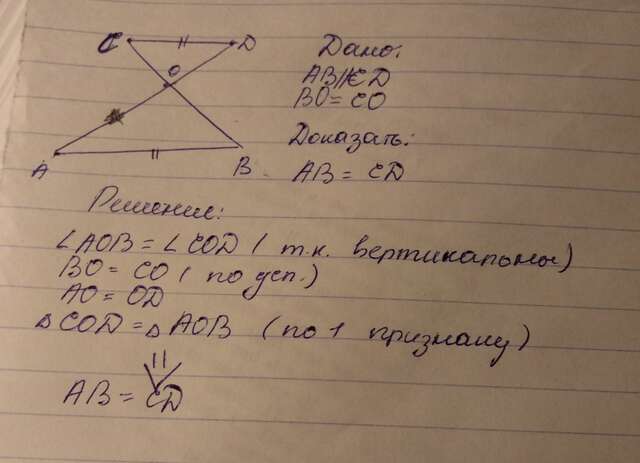 C D
O
A B
Дано:
AB || CD
BO = CO
Доказать:
AB = CD
Решение:
∠AOB = ∠COD ( т.к. вертикальны)
BO = CO ( по усл.)
AO = OD
△COD = △AOB (по 1 признаку)
AB = CD